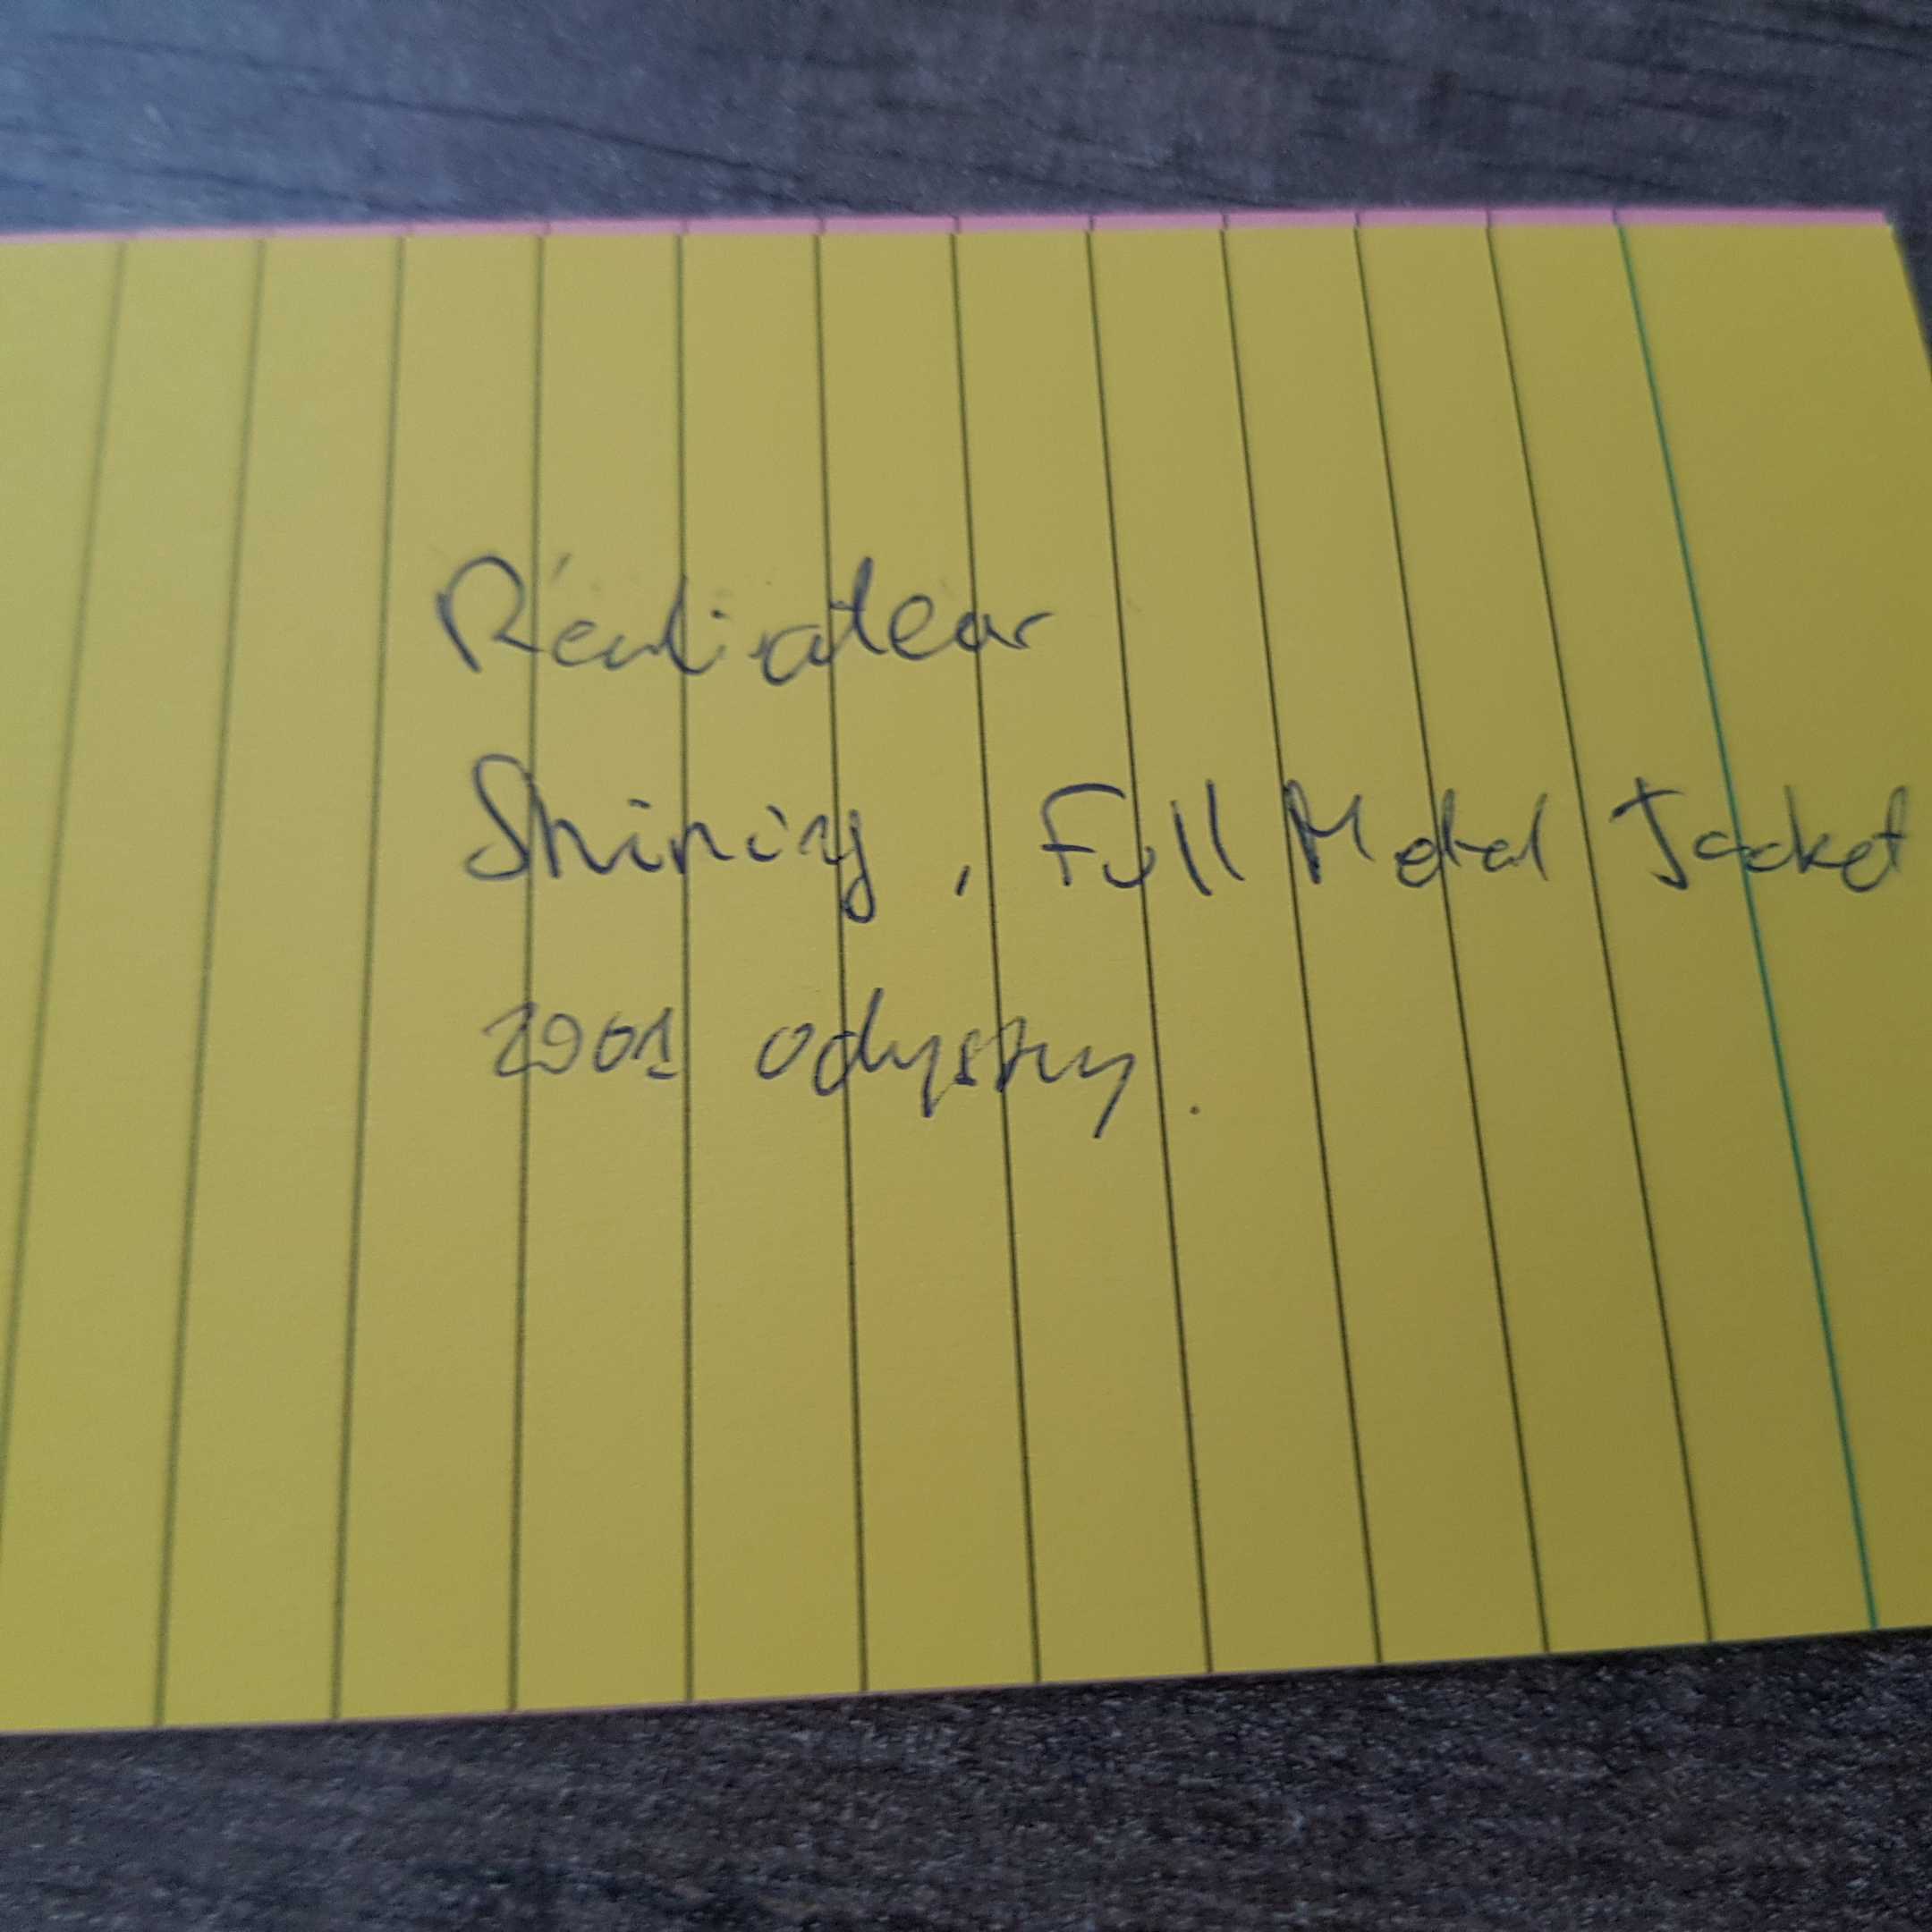 Réalisateur
Shining, Full Metal Jacket
2001 odyssey.